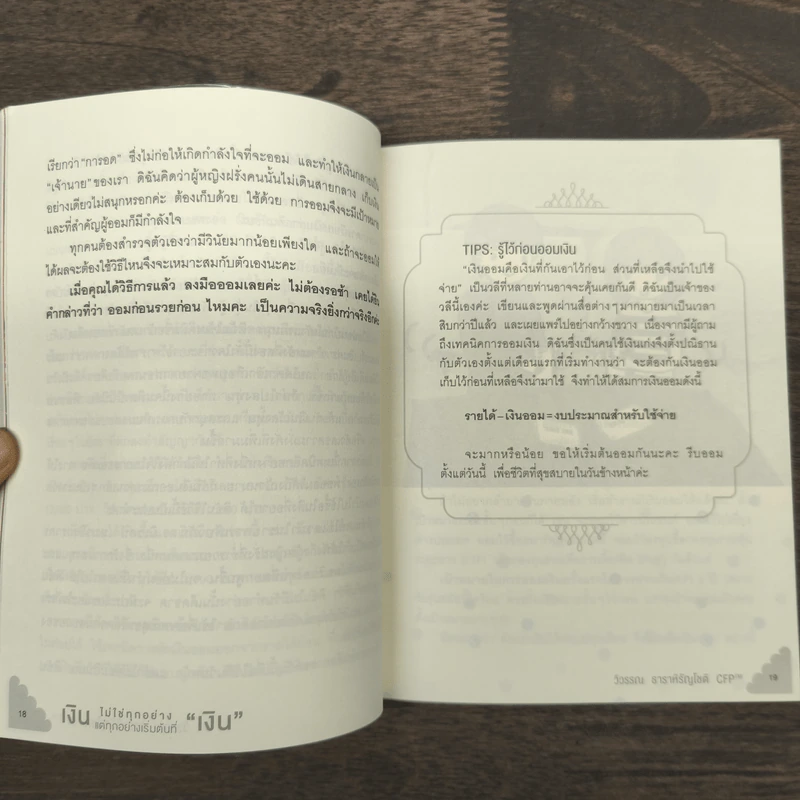 เรียกว่า "การอด" ซึ่งไม่ก่อให้เกิดกำลังใจที่จะออม และทำให้เงินกลายเป็น
"เจ้านาย" ของเรา ดิฉันคิดว่าผู้หญิงฝรั่งคนนั้นไม่เดินสายกลาง เก็บเงิน
อย่างเดียวไม่สนุกหรอกค่ะ ต้องเก็บด้วย ใช้ด้วย การออมจึงจะมีเป้าหมาย
และที่สำคัญผู้ออมก็มีกำลังใจ
ทุกคนต้องสำรวจตัวเองว่ามีวินัยมากน้อยเพียงใด และถ้าจะออมให้
ได้ผลจะต้องใช้วิธีไหนจึงจะเหมาะสมกับตัวเองนะคะ
เมื่อคุณได้วิธีการแล้ว ลงมือออมเลยค่ะ ไม่ต้องรอช้า เคยได้ยิน
คำกล่าวที่ว่า ออมก่อนรวยก่อน ไหมคะ เป็นความจริงยิ่งกว่าจริงอีกค่ะ
18
เงิน ไม่ใช่ทุกอย่าง
แต่ทุกอย่างเริ่มต้นที่ "เงิน"
TIPS: รู้ไว้ก่อนออมเงิน
"เงินออมคือเงินที่กันเอาไว้ก่อน ส่วนที่เหลือจึงนำไปใช้
จ่าย" เป็นวลีที่หลายท่านอาจจะคุ้นเคยกันดี ดิฉันเป็นเจ้าของ
วลีนี้เองค่ะ เขียนและพูดผ่านสื่อต่างๆ มากมายมาเป็นเวลา
สิบกว่าปีแล้ว และเผยแพร่ไปอย่างกว้างขวาง เนื่องจากมีผู้ถาม
ถึงเทคนิคการออมเงิน ดิฉันซึ่งเป็นคนใช้เงินเก่งจึงตั้งปณิธาน
กับตัวเองตั้งแต่เดือนแรกที่เริ่มทำงานว่า จะต้องกันเงินออม
เก็บไว้ก่อนที่เหลือจึงนำมาใช้ จึงทำให้ได้สมการเงินออมดังนี้
รายได้ – เงินออม = งบประมาณสำหรับใช้จ่าย
จะมากหรือน้อย ขอให้เริ่มต้นออมกันนะคะ รีบออม
ตั้งแต่วันนี้ เพื่อชีวิตที่สุขสบายในวันข้างหน้าค่ะ
วิวรรณ ธาราหิรัญโชติ CFP™
19